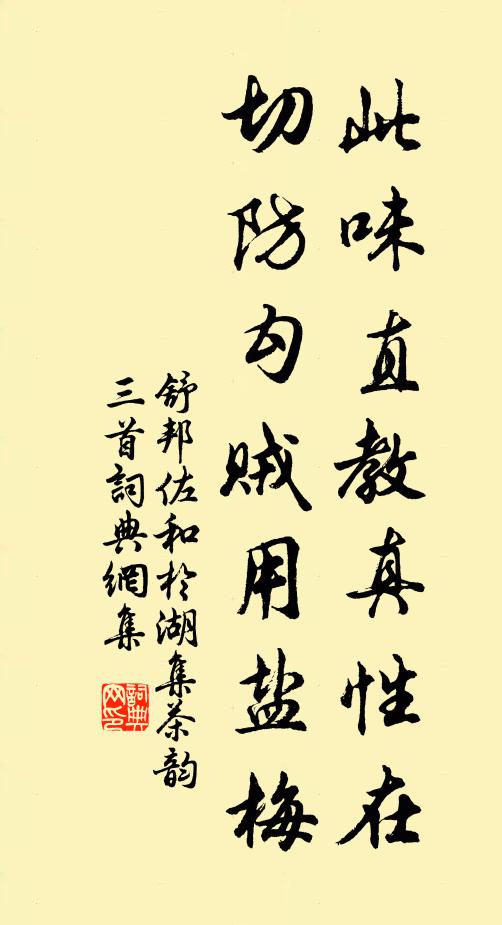 此味直教真性在
切防勾贼用盐梅
舒邦佐和於湖集茶韵
三首詞典網集
詞典网印